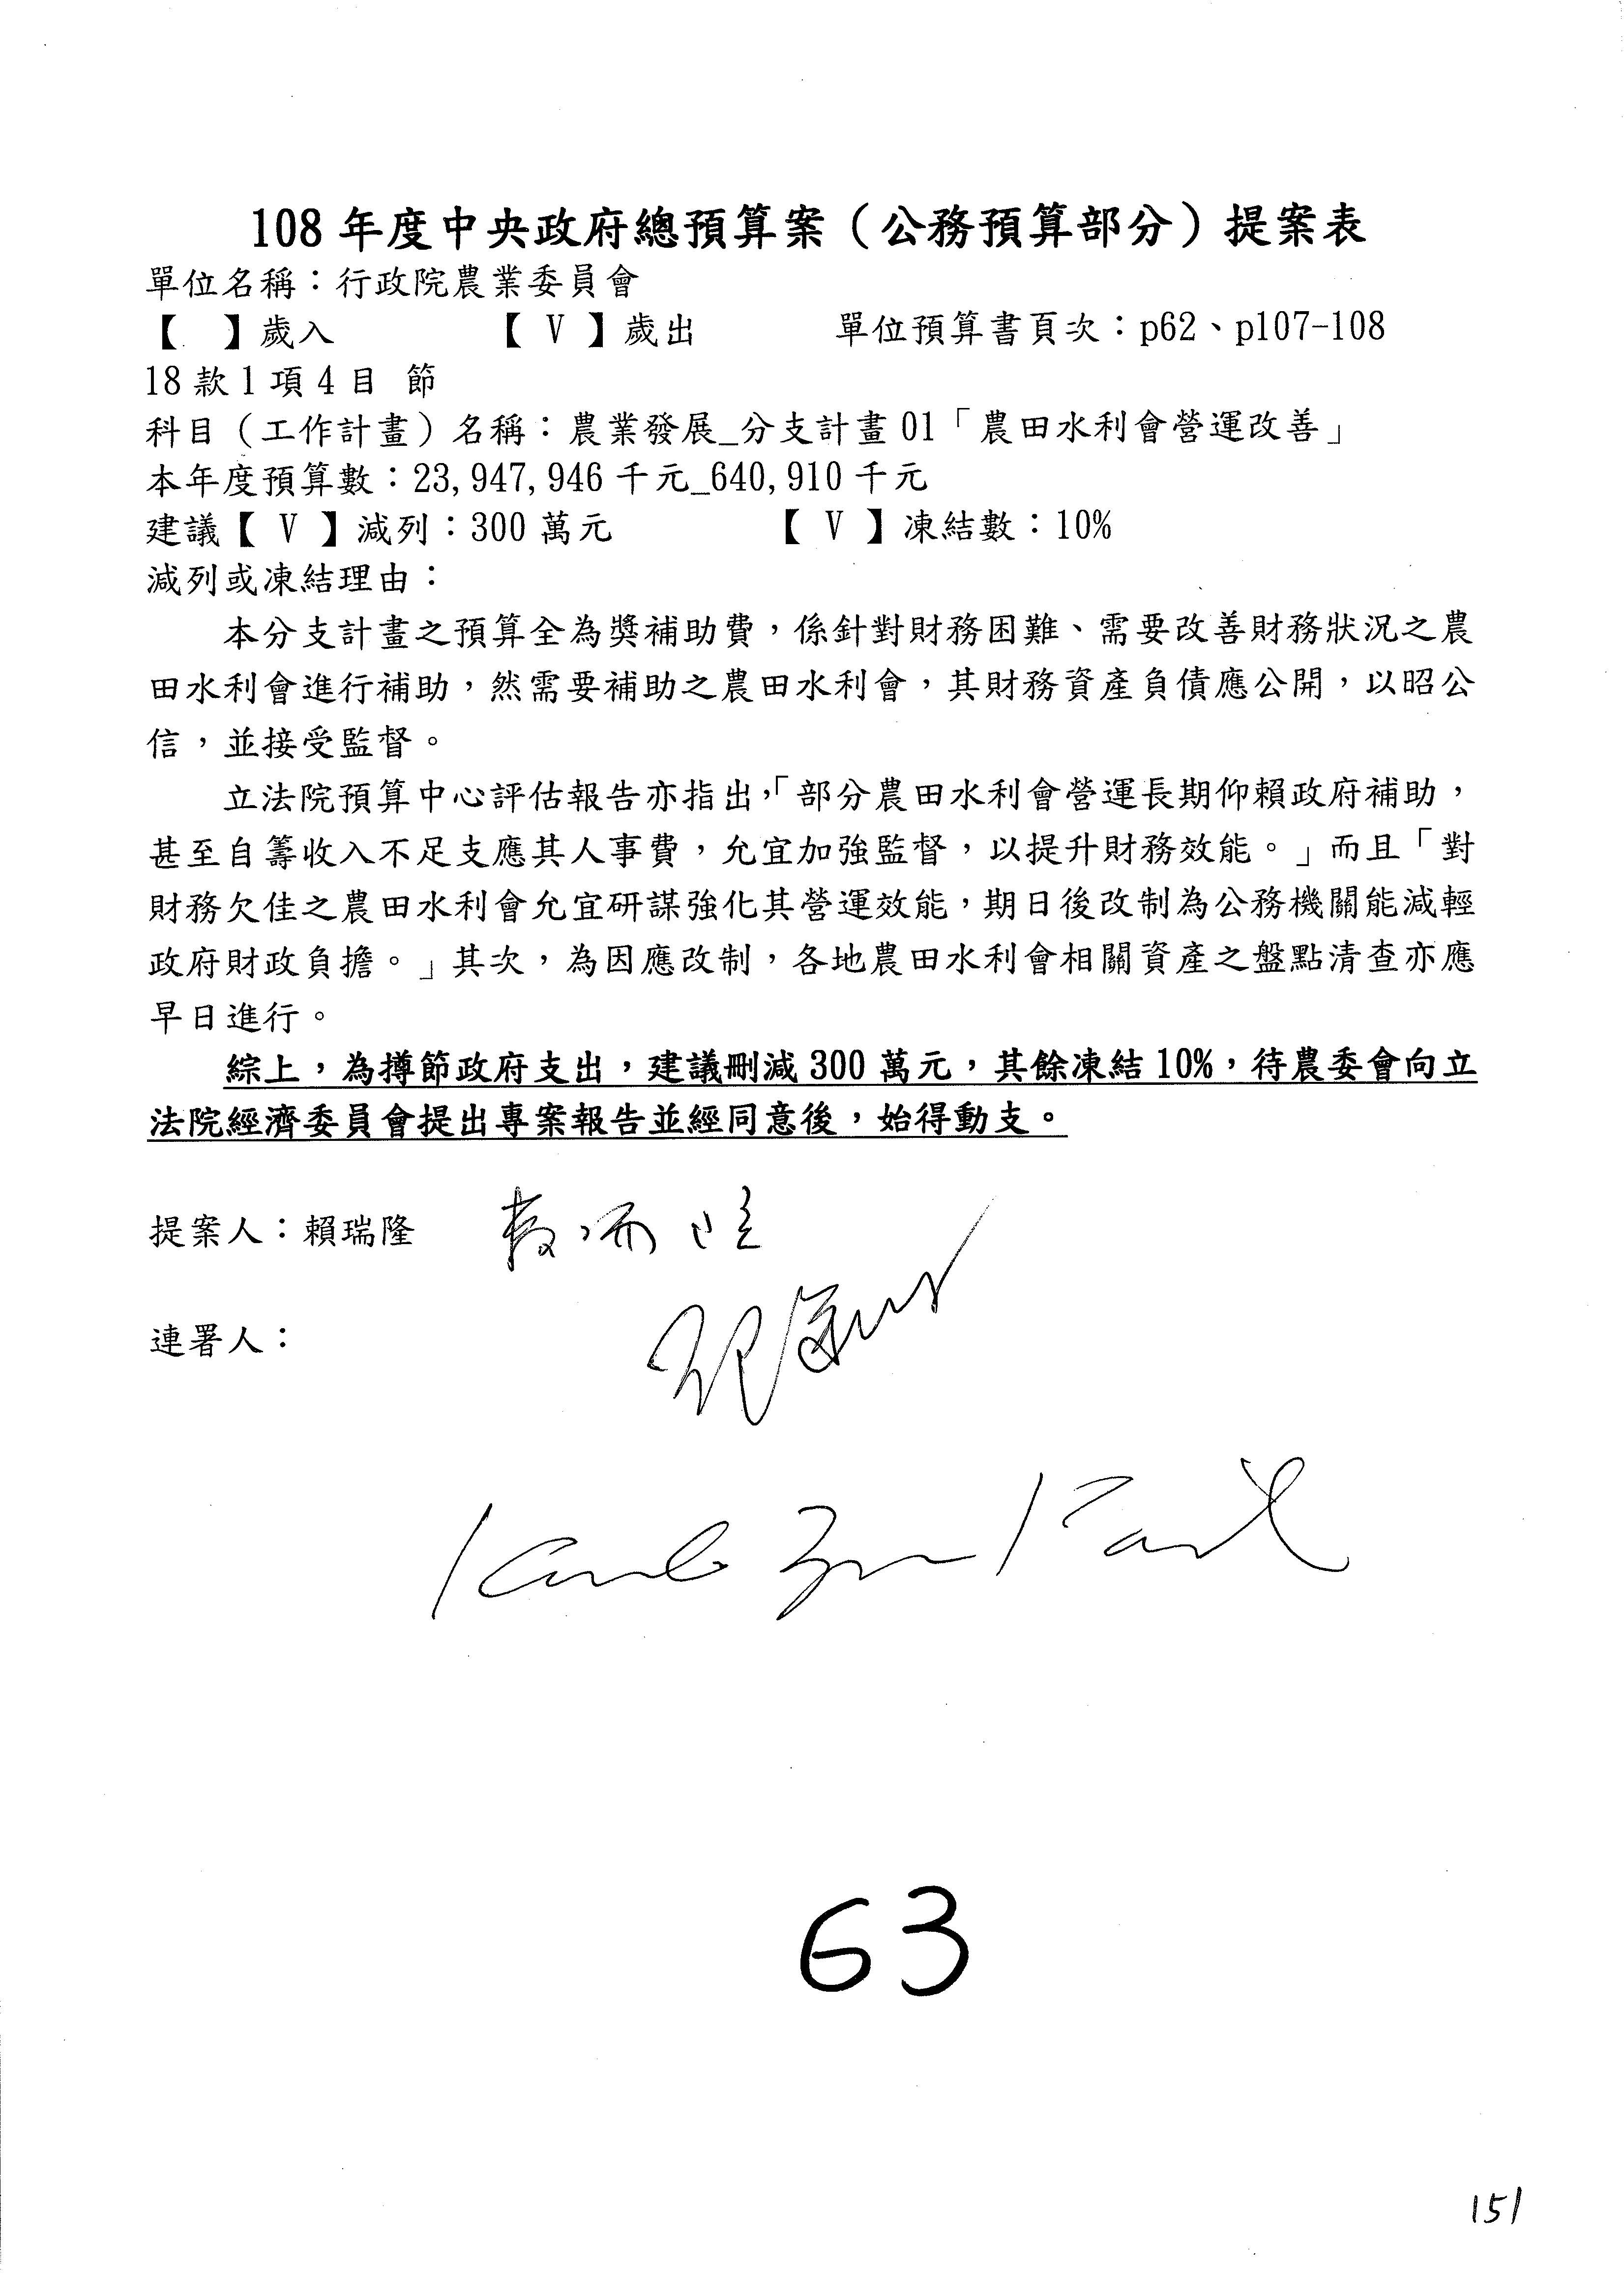 108 年度中央政府總預算案（公務預算部分）提案表
單位名稱：行政院農業委員會
【　】歲入　　【 V 】歲出　　單位預算書頁次：p62、p107-108
18 款 1 項 4 目 節
科目（工作計畫）名稱：農業發展_分支計畫 01「農田水利會營運改善」
本年度預算數：23,947,946 千元_640,910 千元
建議【 V 】減列：300 萬元　　【 V 】凍結數：10%
減列或凍結理由：
本分支計畫之預算全為獎補助費，係針對財務困難、需要改善財務狀況之農
田水利會進行補助，然需要補助之農田水利會，其財務資產負債應公開，以昭公
信，並接受監督。
立法院預算中心評估報告亦指出，「部分農田水利會營運長期仰賴政府補助，
甚至自籌收入不足支應其人事費，允宜加強監督，以提升財務效能。」而且「對
財務欠佳之農田水利會允宜研謀強化其營運效能，期日後改制為公務機關能減輕
政府財政負擔。」其次，為因應改制，各地農田水利會相關資產之盤點清查亦應
早日進行。
綜上，為撙節政府支出，建議刪減 300 萬元，其餘凍結 10%，待農委會向立
法院經濟委員會提出專案報告並經同意後，始得動支。
提案人：賴瑞隆
連署人：
63
151